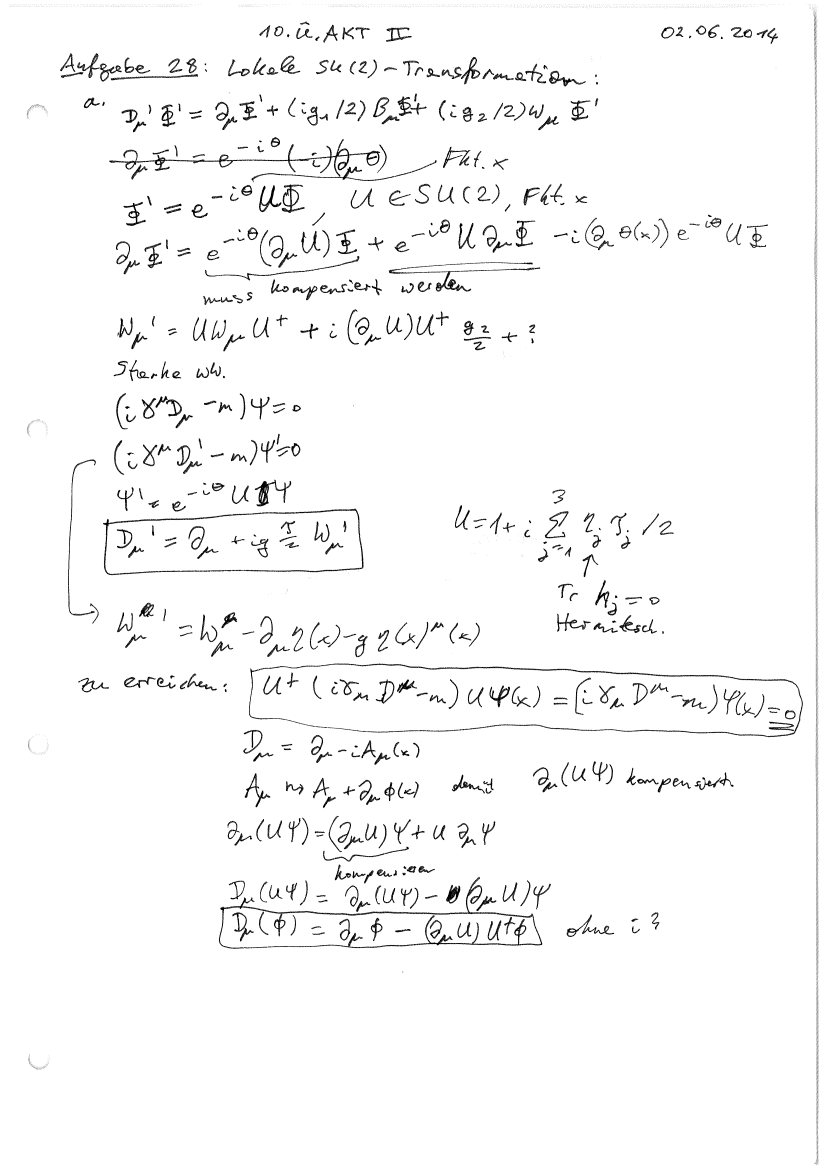 10. Ü. AKT II 02.06.2014
Aufgabe 28: Lokale SU(2)-Transformation:
a. D_μ' Φ' = ∂_μ Φ' + (ig₁/2) B_μ Φ' + (ig₂/2) W_μ Φ'
∂_μ Φ' = e^{-iθ} (-i)(∂_μ θ) Fkt. x
Φ' = e^{-iθ} UΦ, U ∈ SU(2), Fkt. x
∂_μ Φ' = e^{-iθ}(∂_μ U)Φ + e^{-iθ} U ∂_μ Φ - i(∂_μ θ(x)) e^{-iθ} U Φ
muss kompensiert werden
W_μ' = U W_μ U† + i(∂_μ U)U† g₂/2 + ?
Starke WW.
(i γ^μ D_μ - m)Ψ = 0
(i γ^μ D_μ' - m)Ψ' = 0
Ψ' = e^{-iθ} U Ψ
D_μ' = ∂_μ + ig τ/2 W_μ' U = 1 + i ∑_{j=1}^{3} η_j τ_j /2
↑
Tr h_j = 0
Hermitesch.
W_μ' = W_μ - ∂_μ η(x) - g η(x)^μ(x)
zu erreichen: U† (i γ_μ D^μ - m) U Ψ(x) = (i γ_μ D^μ - m) Ψ(x) = 0
D_μ = ∂_μ - i A_μ(x)
A_μ ↦ A_μ + ∂_μ φ(x) damit ∂_μ(UΨ) kompensiert.
∂_μ(UΨ) = (∂_μ U)Ψ + U ∂_μ Ψ
kompensieren
D_μ(UΨ) = ∂_μ(UΨ) - (∂_μ U)Ψ
D_μ(φ) = ∂_μ φ - (∂_μ U) U† φ ohne i ?